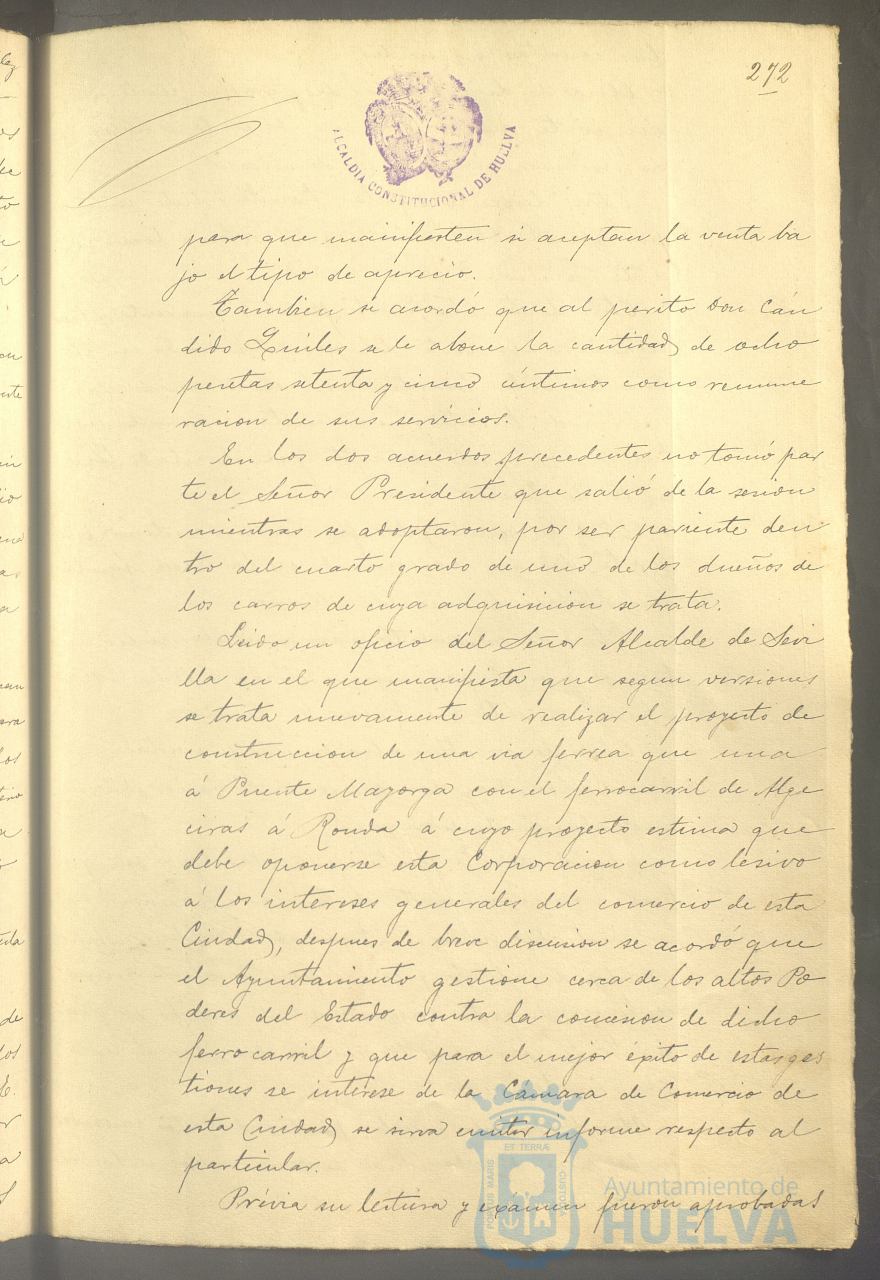 272
ALCALDIA CONSTITUCIONAL DE HUELVA
para que manifiesten si aceptan la venta ba
jo el tipo de aprecio.
Tambien se acordó que al perito Don Cán
dido Quiles se le abone la cantidad de ocho
pesetas setenta y cinco céntimos como remune
racion de sus servicios.
En los dos acuerdos precedentes no tomó par
te el Señor Presidente que salió de la sesion
mientras se adoptaron, por ser pariente den
tro del cuarto grado de uno de los dueños de
los carros de cuya adquisicion se trata.
Leido un oficio del Señor Alcalde de Sevi
lla en el que manifiesta que segun versiones
se trata nuevamente de realizar el proyecto de
construccion de una via ferrea que una
á Puente Mayorga con el ferrocarril de Alge
ciras á Ronda á cuyo proyecto estima que
debe oponerse esta Corporacion como lesivo
á los intereses generales del comercio de esta
Ciudad, despues de breve discusion se acordó que
el Ayuntamiento gestione cerca de los altos Po
deres del Estado contra la concesion de dicho
ferrocarril y que para el mejor éxito de estas ges
tiones se interese de la Cámara de Comercio de
esta Ciudad se sirva emitir informe respecto al
particular.
Prévia su lectura y exámen fueron aprobadas
PORTUS MARIS ET TERRÆ CUSTODIA
Ayuntamiento de
HUELVA